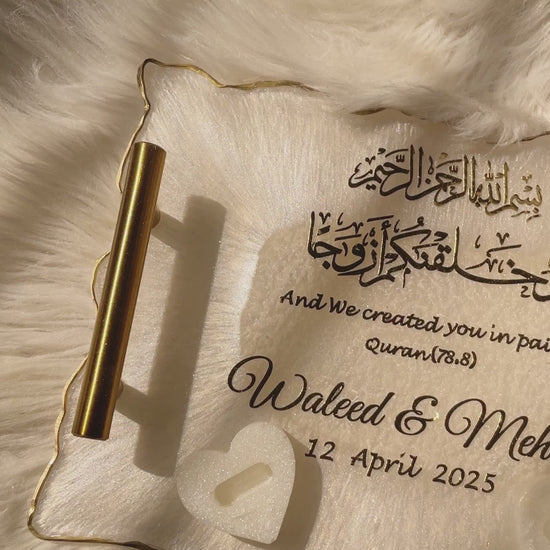 بِسْمِ اللهِ الرَّحْمٰنِ الرَّحِيْمِ
وَخَلَقْنٰكُمْ أَزْوَاجًا
And We created you in pai
Quran(78.8)
Waleed & Meh
12 April 2025